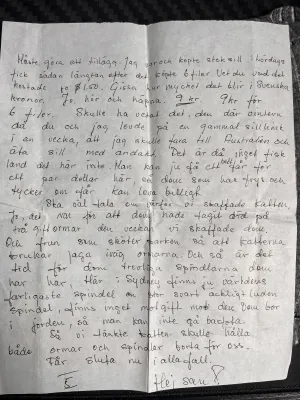 Måste göra ett tillägg. Jag var och köpte stek sill i lördags
fick sådan längtan efter det köpte 6 filer. Vet du vad det
kostade $1,50. Gissa hur mycket det blir i Svenska
kronor. Jo, hör och häpna. 9 kr 9 kr för
6 filer. Skulle ha vetat det, den där
då du och jag, levde på en gammal sill
i en vecka, att jag skulle fara till Australien och
äta sill med andakt. Det är då inget fisk
land det här inte. Man kan ju få ett får för
ett par dollar här om som har fryst och
tycker om får kan leva billigt
Ska väl tala om varför vi skaffade katten.
Jo, det var för att dom hade tagit död på
två giftormar den veckan vi skaffade dom.
Och frun som sköter parken sa att katterna
brukar jaga iväg ormarna. Och så är det
tid för dom trevliga spindlarna dom
har här. Här i Sydney finns ju världens
farligaste spindel en stor svart luden
spindel, finns inget motgift mot den. Dom bor
i jorden, så man kan inte gå barfota.
Så vi tänkte katten skulle hålla
både ormar och spindlar borta för oss.
Får sluta nu i allafall.
Hej san!